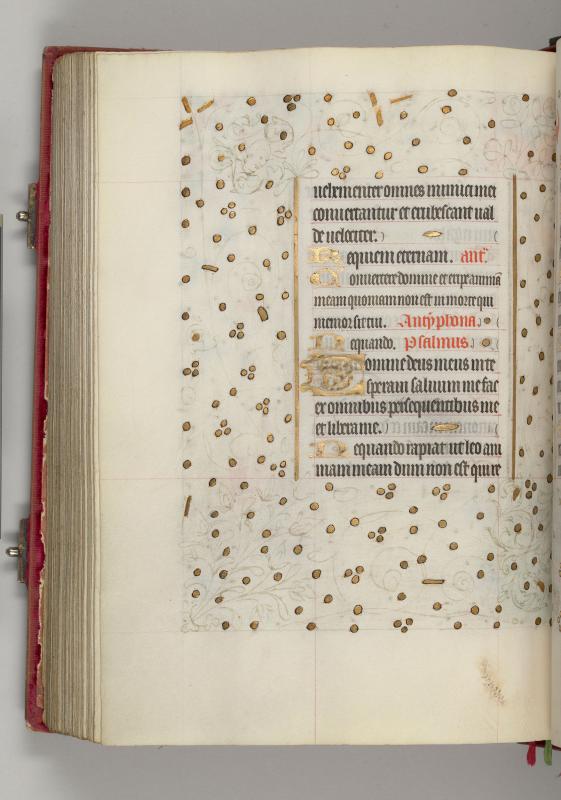 uehementer omnes inimici mei
conuertantur et erubescant ual
de uelociter.
Requiem eternam. ant̄.
Conuertere domine et eripe animā
meam quoniam non est in morte qui
memor sit tui. Antyphona.
Nequando. Psalmus.
Domine deus meus in te
speraui saluum me fac
ex omnibus persequentibus me
et libera me.
Nequando rapiat ut leo ani
mam meam dum non est qui re